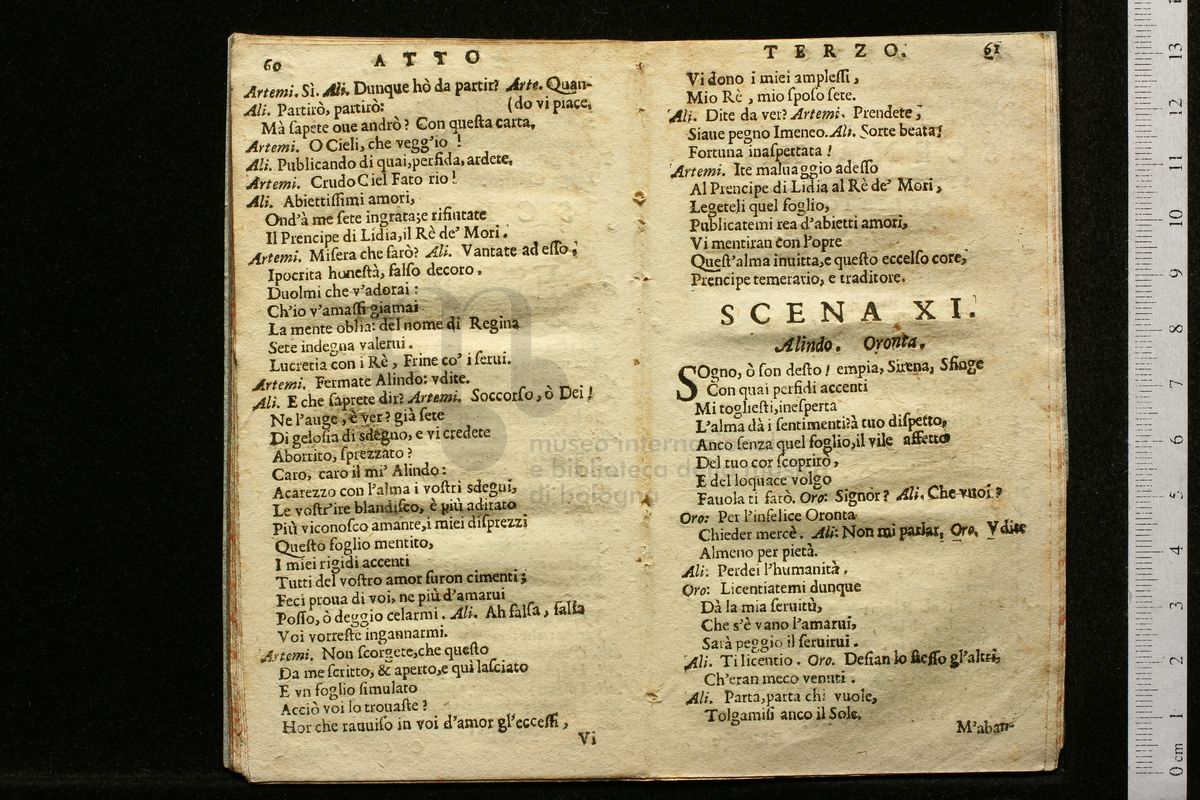 60 ATTO
Artemi. Sì. Ali. Dunque hò da partir? Arte. Quan-
Ali. Partirò, partirò: (do vi piace.
Mà sapete oue andrò? Con questa carta.
Artemi. O Cieli, che vegg'io !
Ali. Publicando di quai,perfida,ardete.
Artemi. Crudo Ciel Fato rio!
Ali. Abiettissimi amori,
Ond'à me sete ingrata;e rifiutate
Il Prencipe di Lidia,il Rè de' Mori.
Artemi. Misera che farò? Ali. Vantate ad esso,
Ipocrita hunestà, falso decoro.
Duolmi che v'adorai :
Ch'io v'amassi giamai
La mente oblia: del nome di Regina
Sete indegna valerui.
Lucretia con i Rè, Frine co' i serui.
Artemi. Fermate Alindo: vdite.
Ali. E che saprete dir? Artemi. Soccorso, ò Dei!
Ne l'auge, è ver? già sete
Di gelosia di sdegno, e vi credete
Aborrito, sprezzato ?
Caro, caro il mi' Alindo:
Acarezzo con l'alma i vostri sdegni,
Le vostr'ire blandisco, è più adirato
Più viconosco amante,i miei disprezzi
Questo foglio mentito,
I miei rigidi accenti
Tutti del vostro amor furon cimenti;
Feci proua di voi, ne più d'amarui
Posso, ò deggio celarmi. Ali. Ah falsa, falsa
Voi vorreste ingannarmi.
Artemi. Non scorgete,che questo
Da me scritto, & aperto,e quì lasciato
E vn foglio simulato
Acciò voi lo trouaste ?
Hor che rauuiso in voi d'amor gl'eccessi,
Vi
TERZO. 61
Vi dono i miei amplessi,
Mio Rè, mio sposo sete.
Ali. Dite da ver? Artemi. Prendete;
Siaue pegno Imeneo. Ali. Sorte beata!
Fortuna inaspettata !
Artemi. Ite maluaggio adesso
Al Prencipe di Lidia al Rè de' Mori,
Legeteli quel foglio,
Publicatemi rea d'abietti amori,
Vi mentiran con l'opre
Quest'alma inuitta,e questo eccelso core,
Prencipe temerario, e traditore.
SCENA XI.
Alindo. Oronta.
SOgno, ò son desto! empia, Sirena, Sfinge
Con quai perfidi accenti
Mi togliesti,inesperta
L'alma dà i sentimenti?à tuo dispetto,
Anco senza quel foglio,il vile affetto
Del tuo cor scoprirò,
E del loquace volgo
Fauola ti farò. Oro: Signor? Ali. Che vuoi?
Oro: Per l'infelice Oronta
Chieder mercè. Ali: Non mi parlar. Oro. Vdite
Almeno per pietà.
Ali: Perdei l'humanità.
Oro: Licentiatemi dunque
Dà la mia seruitù,
Che s'è vano l'amarui,
Sarà peggio il seruirui.
Ali. Ti licentio. Oro. Desian lo stesso gl'altri,
Ch'eran meco venuti.
Ali. Parta,parta chi vuole,
Tolgamisi anco il Sole.
M'aban-
museo interna
e biblioteca della musica
di bologna